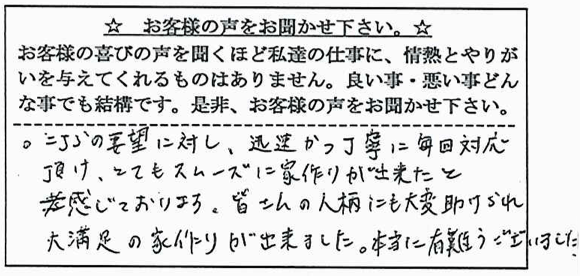 ☆ お客様の声をお聞かせ下さい。☆
お客様の喜びの声を聞くほど私達の仕事に、情熱とやりが
いを与えてくれるものはありません。良い事・悪い事どん
な事でも結構です。是非、お客様の声をお聞かせ下さい。
。こちらの要望に対し、迅速かつ丁寧に毎回対応
頂け、とてもスムーズに家作りが出来たと
感じております。皆さんの人柄にも大変助けられ
大満足の家作りが出来ました。本当に有難うございました